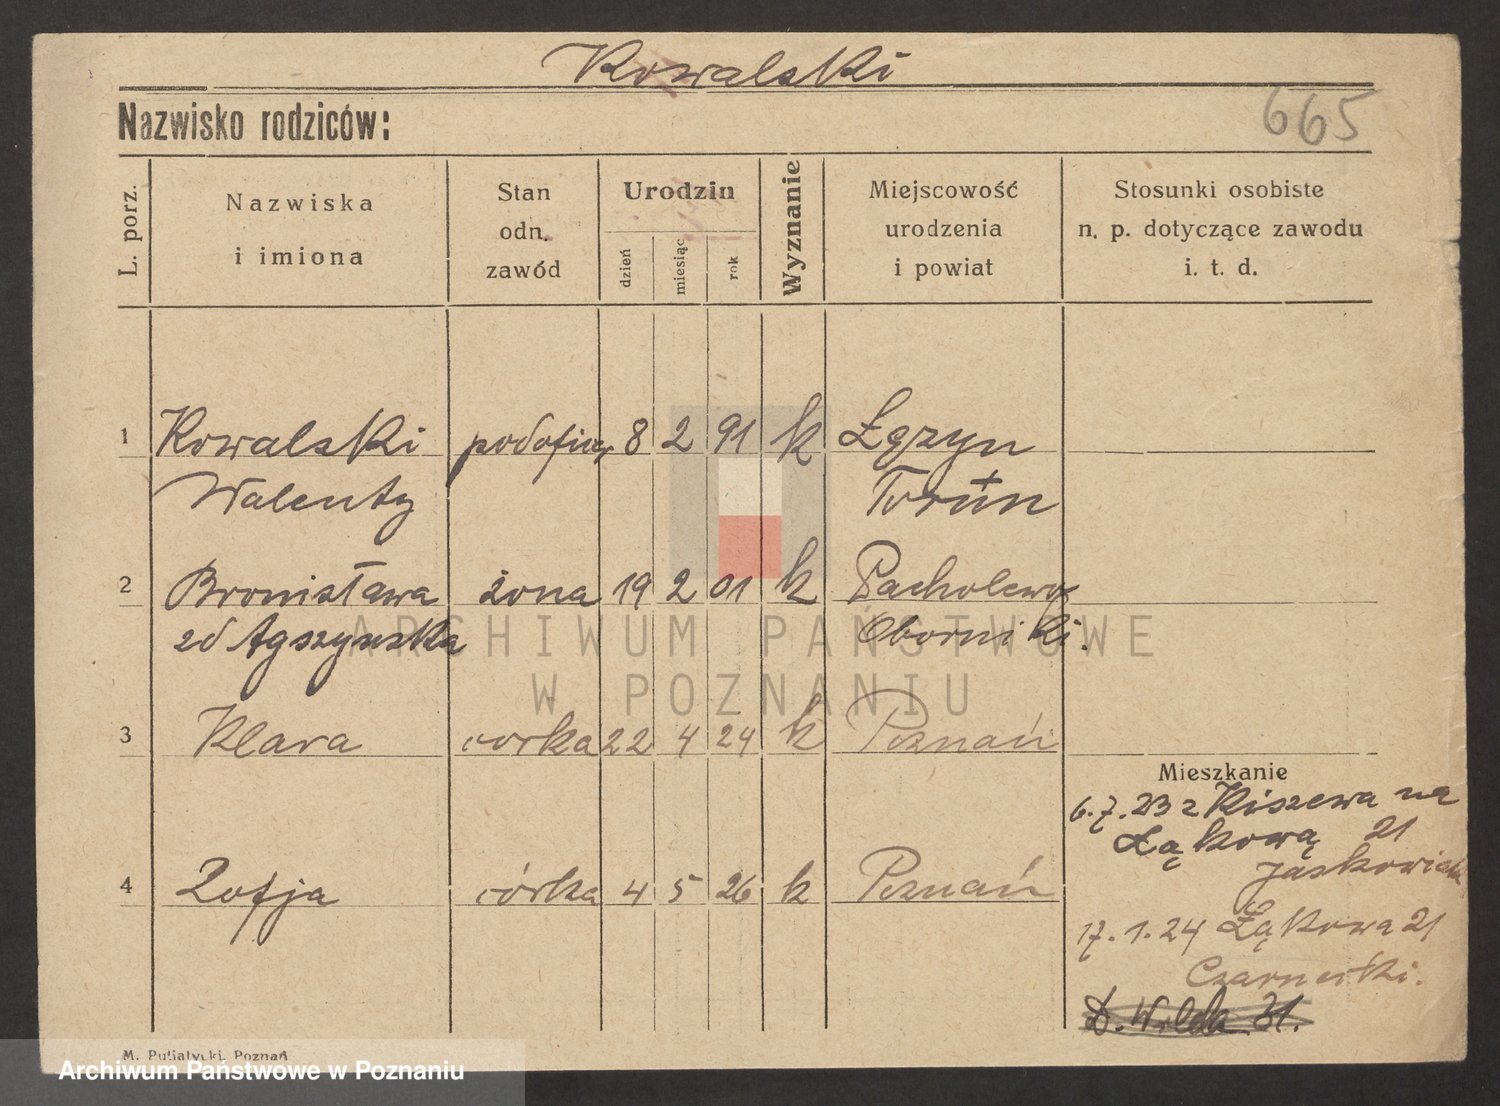 Kowalski
Nazwisko rodziców:
665
L. porz.
Nazwiska
i imiona
Stan
odn.
zawód
Urodzin
dzień
miesiąc
rok
Wyznanie
Miejscowość
urodzenia
i powiat
Stosunki osobiste
n. p. dotyczące zawodu
i. t. d.
1 Kowalski podoficer 8 2 91 k Łązyn
Walenty Toruń
2 Bronisława żona 19 2 01 k Pacholewo
zd Oborniki.
3 Klara corka 22 4 24 k Poznań
Mieszkanie
6.7.23 z Kiszewa na
Łąkową 21
Jaskowiak
4 Zofja córka 4 5 26 k Poznań
17.1.24 Łąkowa 21
Czarnecki.
D. Wilda 31.
M. Putiatycki, Poznań
ARCHIWUM PAŃSTWOWE
W POZNANIU
Archiwum Państwowe w Poznaniu